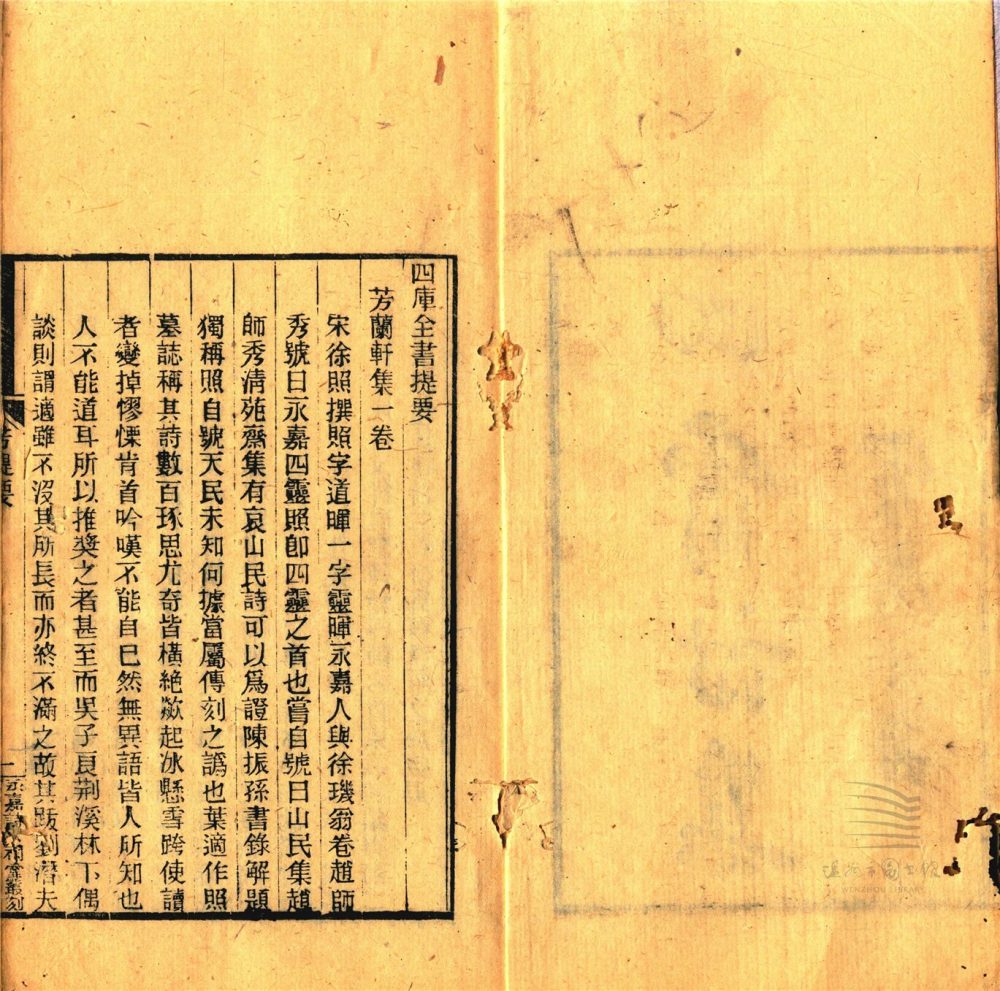 四庫全書提要
芳蘭軒集一卷
宋徐照撰照字道暉一字靈暉永嘉人與徐璣翁卷趙師
秀號曰永嘉四靈照卽四靈之首也嘗自號曰山民集趙
師秀淸苑齋集有哀山民詩可以爲證陳振孫書錄解題
獨稱照自號天民未知何據當屬傳刻之譌也葉適作照
墓誌稱其詩數百琢思尤奇皆橫絶欻起冰懸雪跨使讀
者變掉憀慄肯首吟嘆不能自已然無異語皆人所知也
人不能道耳所以推奬之者甚至而吳子良荆溪林下偶
談則謂適雖不沒其所長而亦終不滿之故其跋劉潛夫
提要
一
永嘉詩人祠堂叢刻
溫州市圖書館
WENZHOU LIBRARY